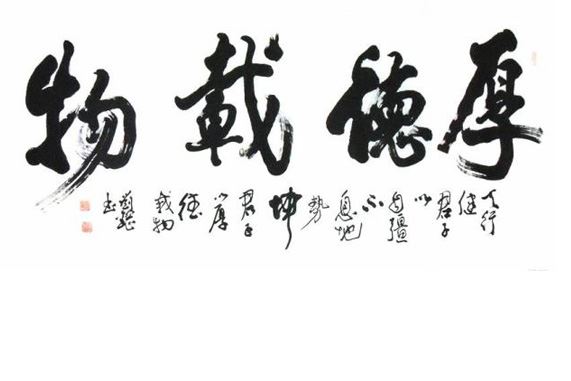 厚德載物
天行
健
君子
以
自彊
不
息地
勢
坤
君子
以厚
德
載物